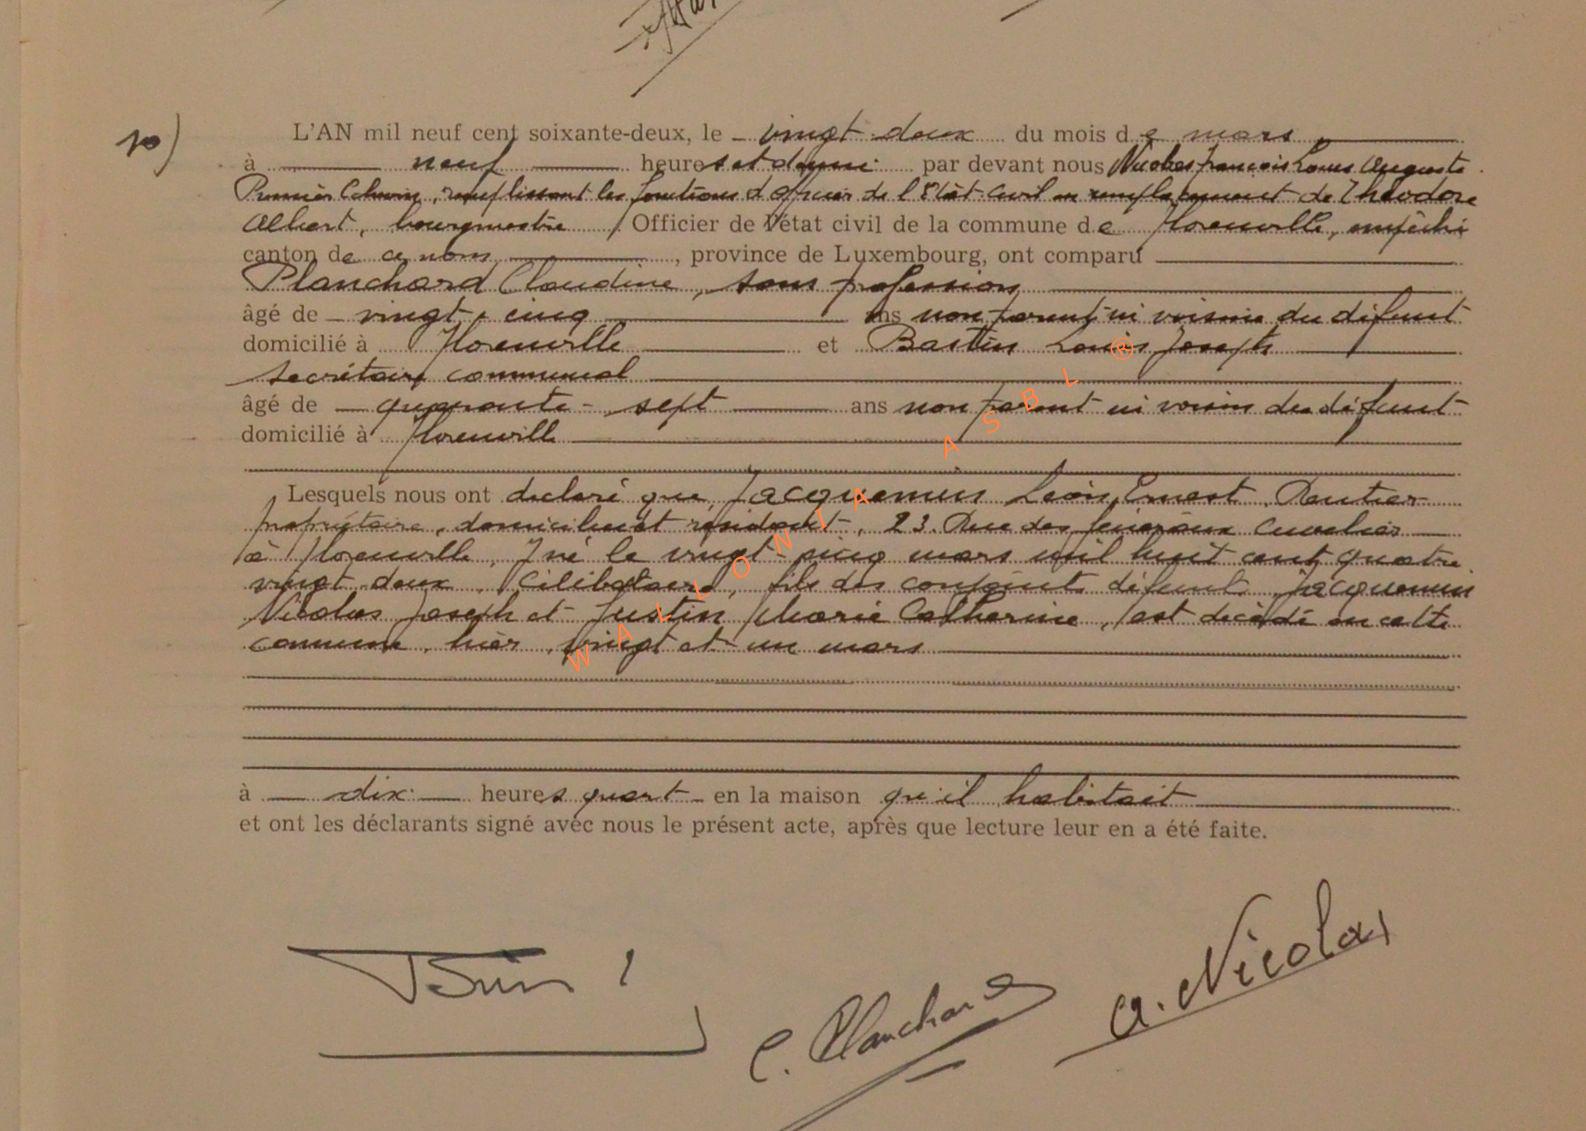 10)
L'AN mil neuf cent soixante-deux, le vingt deux du mois de mars
à neuf heures et demie par devant nous Nicolas François Louis Auguste
Premier Echevin, remplissant les fonctions d'officier de l'Etat-Civil en remplacement de Théodore
Albert, bourgmestre / Officier de l'état civil de la commune de Florenville, empêché
canton de ce nom, province de Luxembourg, ont comparu
Planchard Claudine, sans profession
âgé de vingt-cinq ans non parent ni voisine du défunt
domicilié à Florenville et Bastin Louis Joseph
secrétaire communal
âgé de quarante-sept ans non parent ni voisin du défunt
domicilié à Florenville
Lesquels nous ont déclaré que Jacquemin Léon, Ernest, Rentier
propriétaire, domicilié et résidant, 23. Rue des Généraux Cuvelier
à Florenville, né le vingt-cinq mars mil huit cent quatre
vingt deux, Célibataire, fils des conjoint défunt Jacquemin
Nicolas Joseph et Justin Marie Catherine, est décédé en cette
commune, hier, vingt et un mars
à dix heures quart en la maison qu'il habitait
et ont les déclarants signé avec nous le présent acte, après que lecture leur en a été faite.
C. Planchard
A. Nicolas
WALLONIA ASBL ®